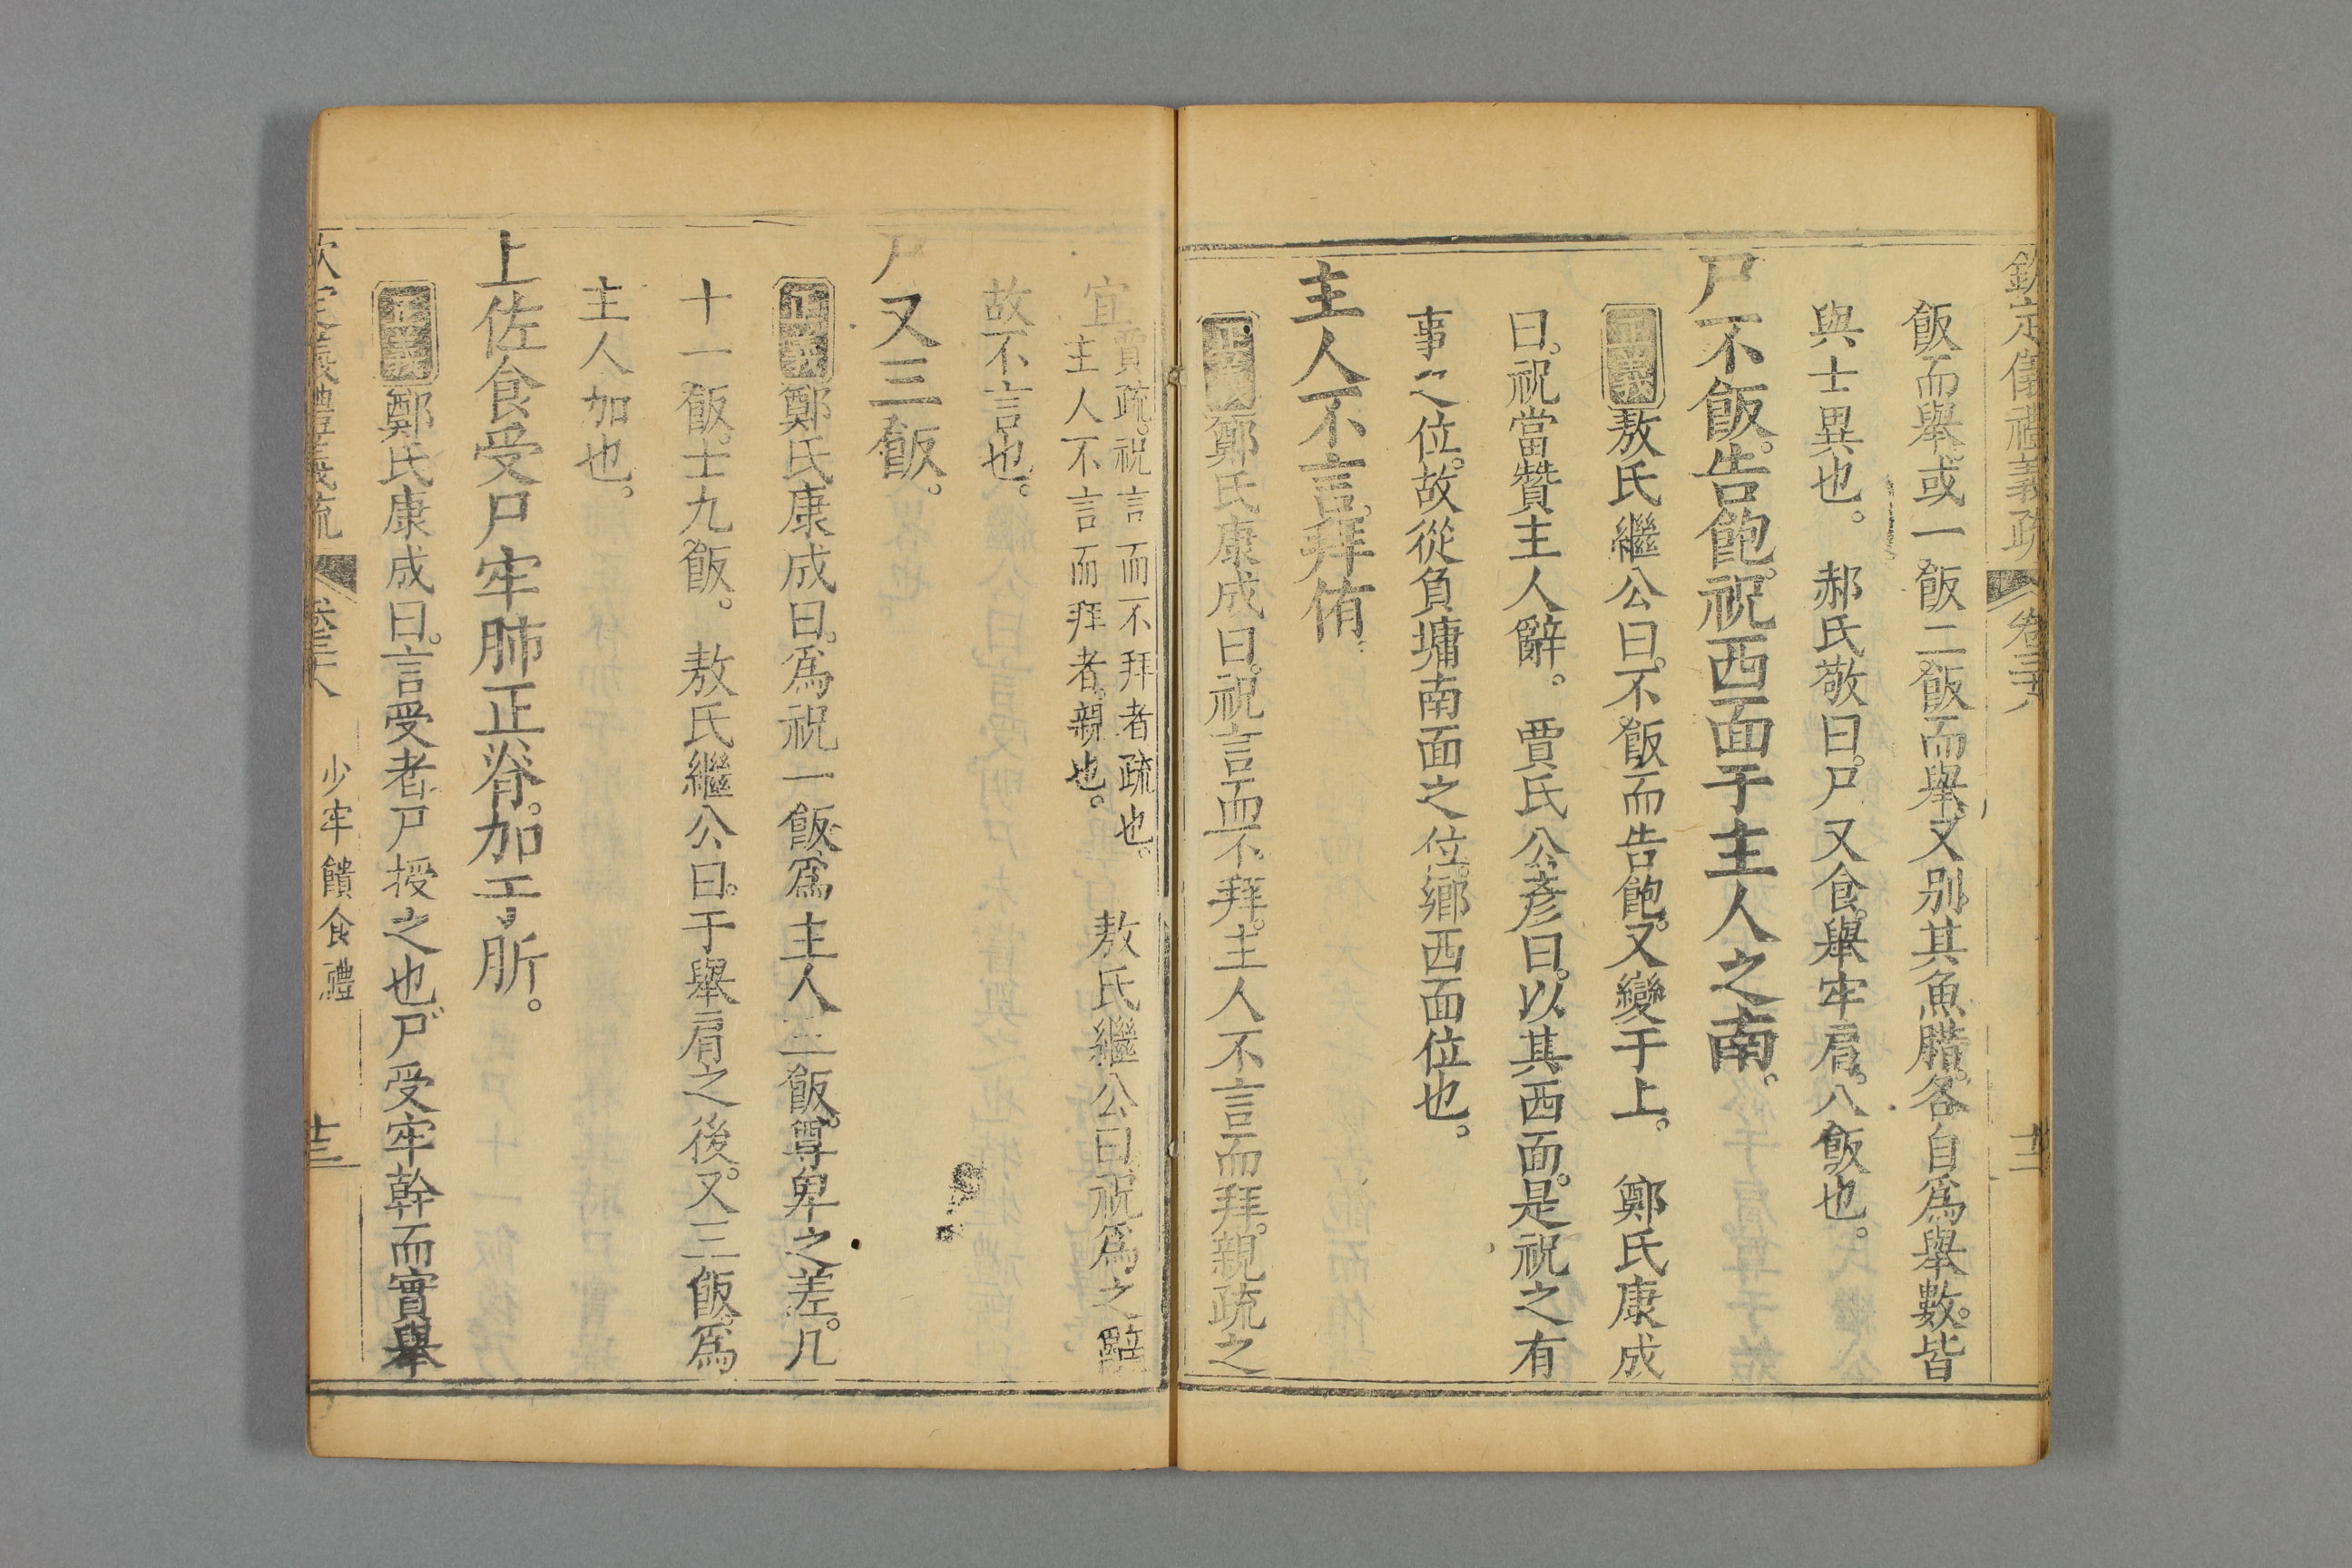 欽定儀禮義疏 卷三十八 十二
飯而舉。或一飯二飯而舉。又別其魚腊。各自爲舉數。皆
與士異也。 郝氏敬曰。尸又食。舉牢肩。八飯也。
尸不飯。告飽。祝西面于主人之南。
正義敖氏繼公曰。不飯而告飽。又變于上。 鄭氏康成
曰。祝當贊主人辭。 賈氏公彥曰。以其西面。是祝之有
事之位。故從負墉南面之位。鄉西面位也。
主人不言。拜侑。
正義鄭氏康成曰。祝言而不拜。主人不言而拜。親疏之
宜。賈疏。祝言而不拜者疏也。主人不言而拜者。親也。 敖氏繼公曰。祝爲之辭
故不言也。
尸又三飯。
正義鄭氏康成曰。爲祝一飯。爲主人三飯。尊卑之差。凡
十一飯。士九飯。 敖氏繼公曰。于舉肩之後。又三飯。爲
主人加也。
上佐食受尸牢肺正脊。加于肵。
正義鄭氏康成曰。言受者。尸授之也。尸受牢幹而實舉
欽定儀禮義疏 卷三十八 少牢饋食禮 十三